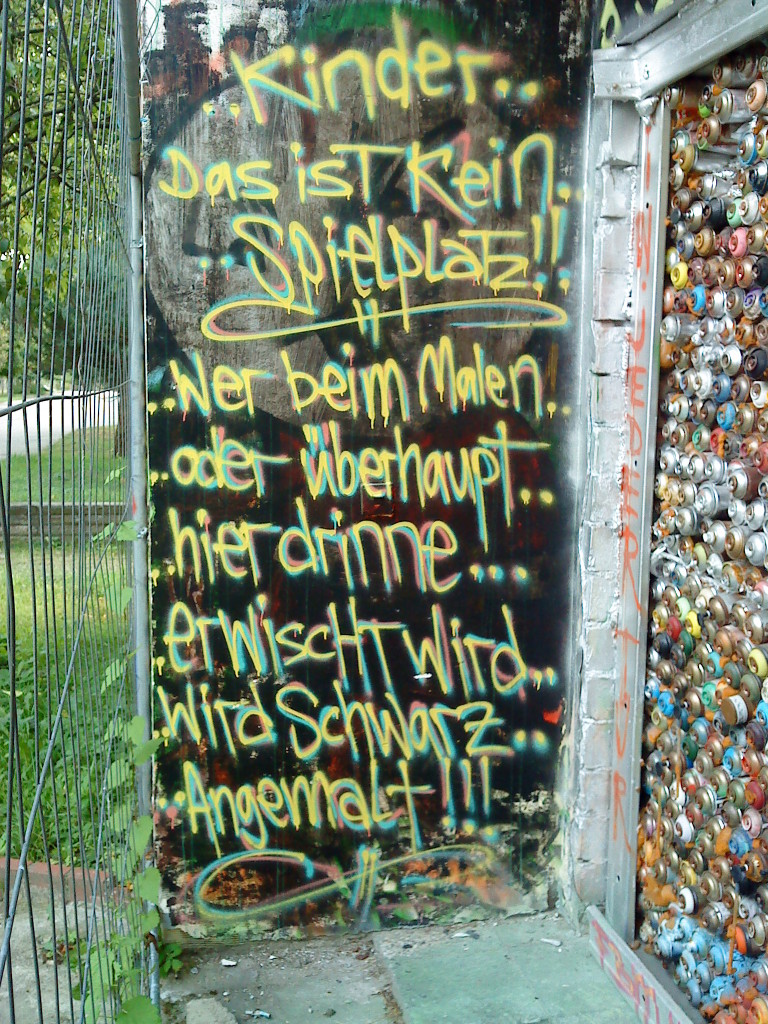 ..Kinder..
Das ist Kein..
..Spielplatz!!
..Wer beim Malen..
..oder überhaupt..
..hier drinne...
..erwischt wird..
..wird Schwarz..
..Angemalt!!!